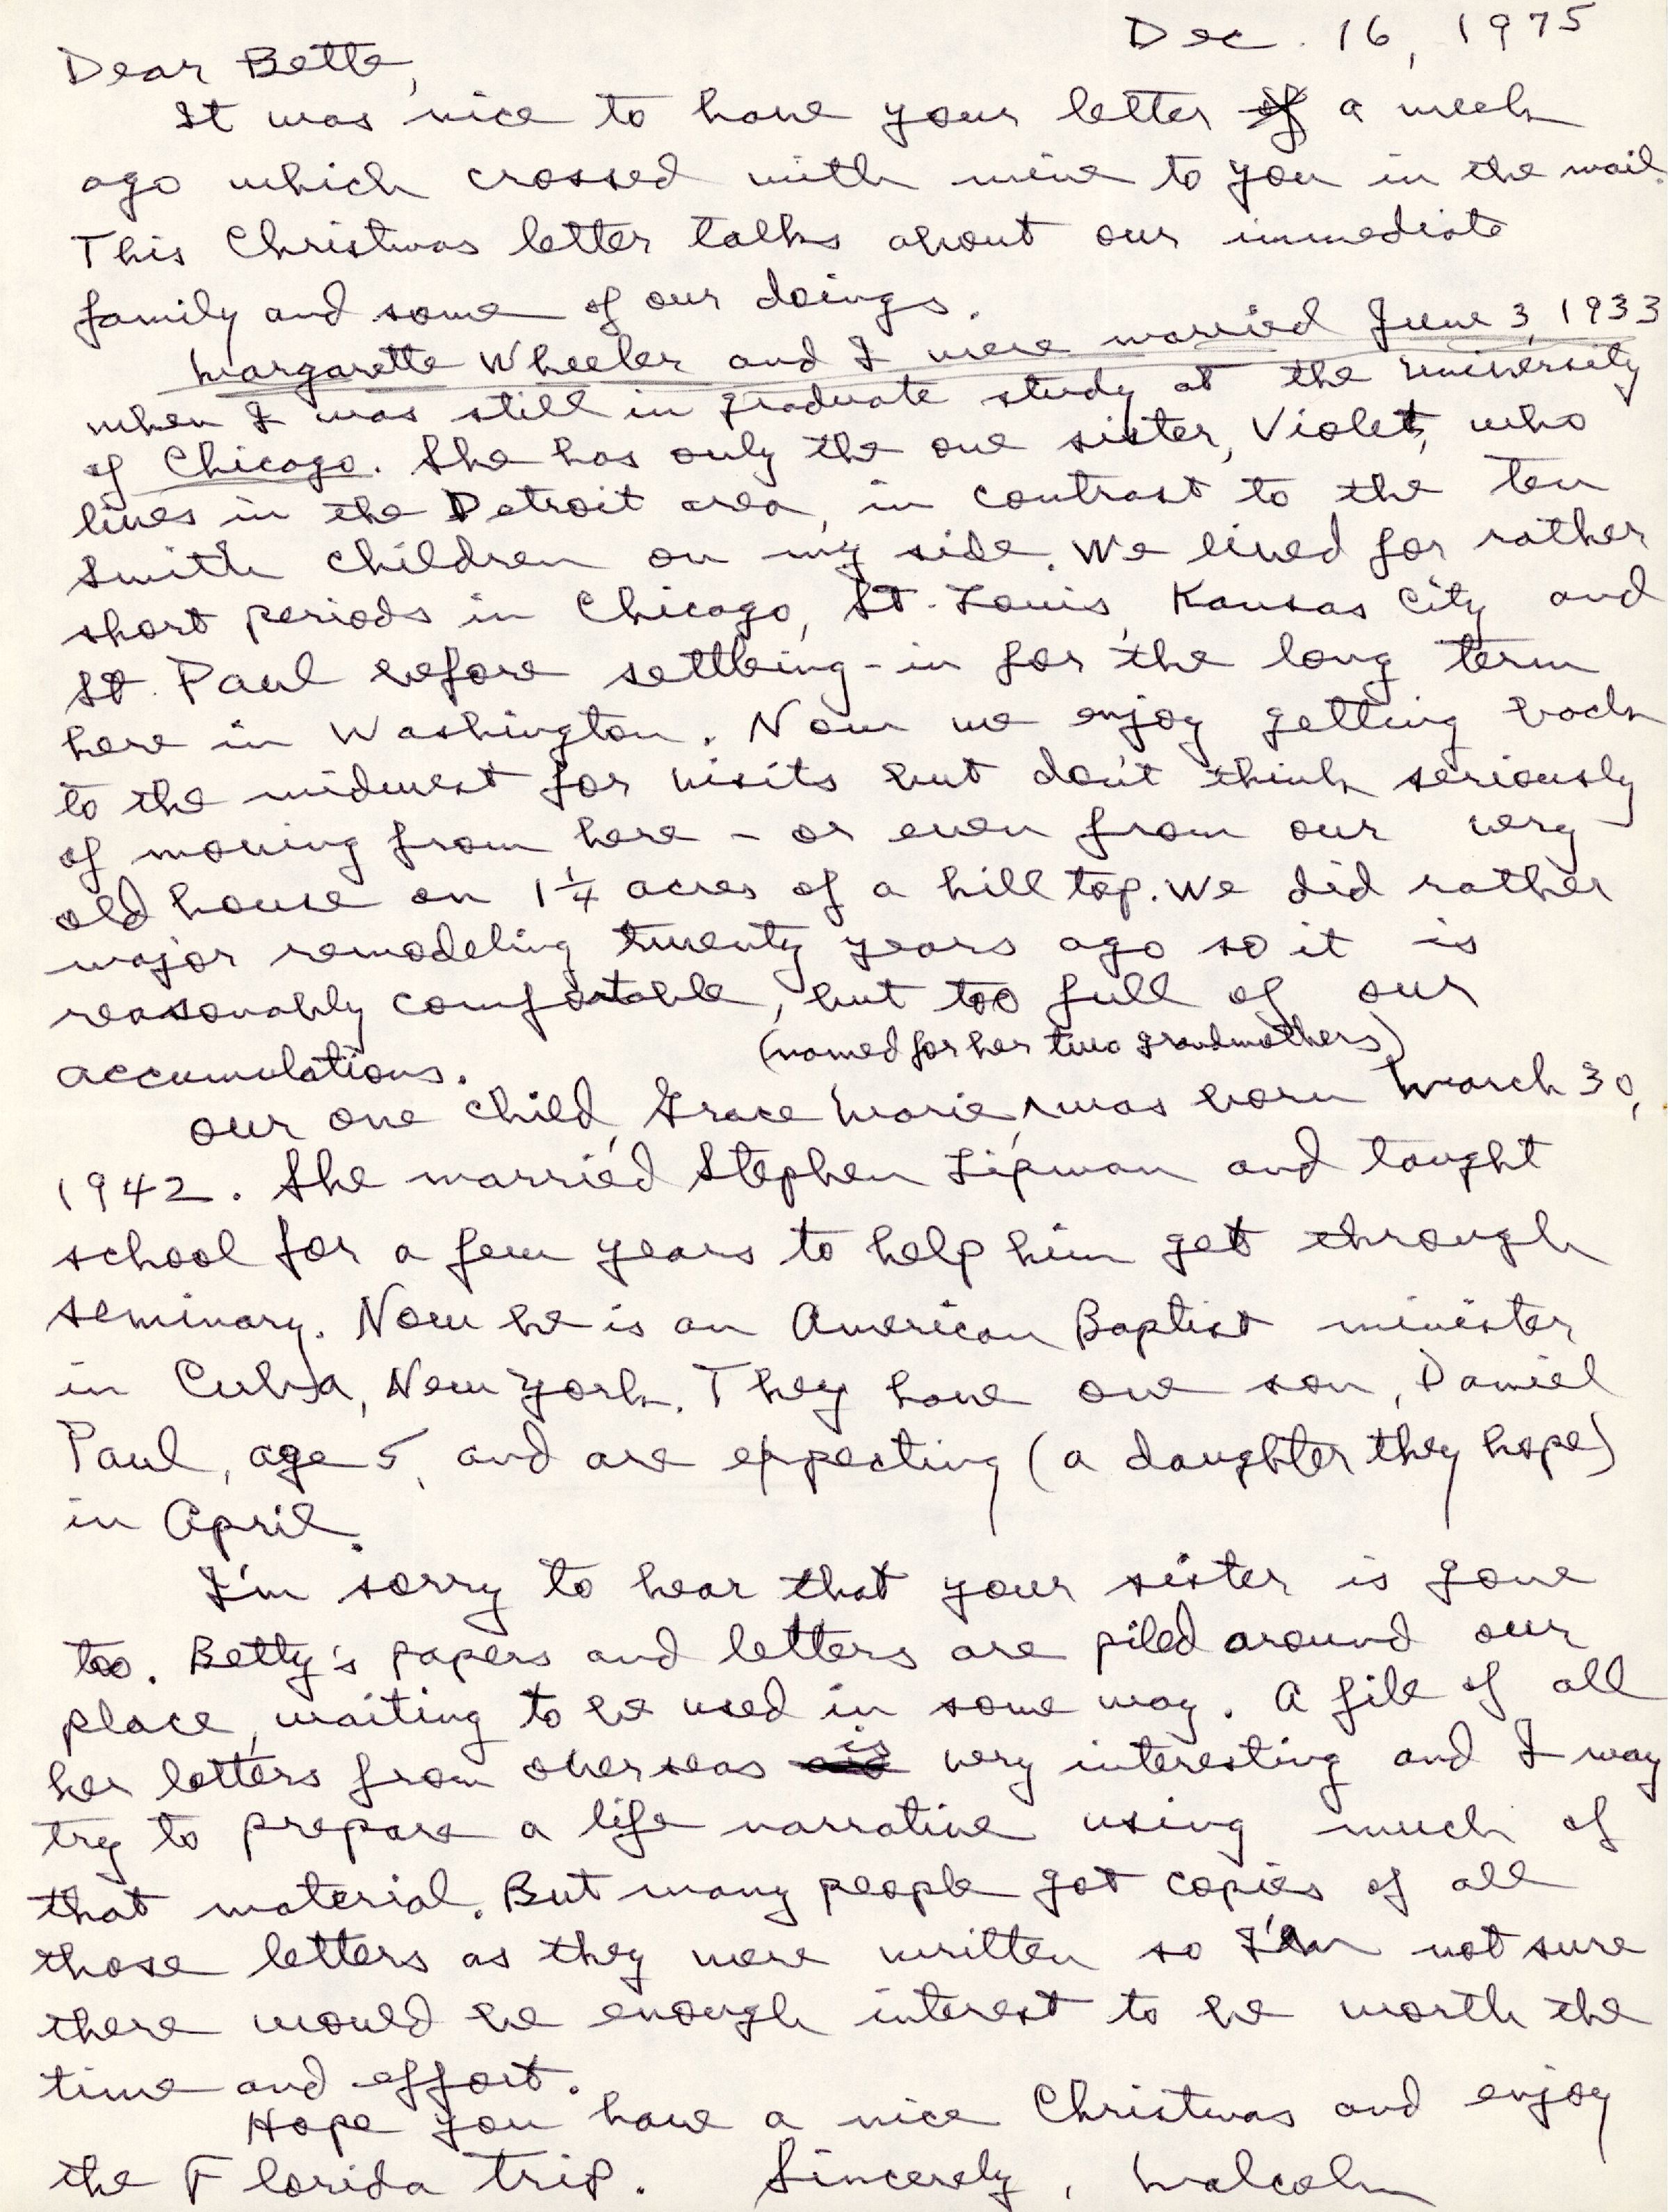 Dec. 16, 1975
Dear Bette,
It was nice to have your letter of a week
ago which crossed with mine to you in the mail.
This Christmas letter talks about our immediate
family and some of our doings.
Margarette Wheeler and I were married June 3, 1933
when I was still in graduate study at the University
of Chicago. She has only the one sister, Violet, who
lives in the Detroit area, in contrast to the ten
Smith children on my side. We lived for rather
short periods in Chicago, St. Louis, Kansas City and
St. Paul before settling-in for the long term
here in Washington. Now we enjoy getting back
to the midwest for visits but don't think seriously
of moving from here - or even from our very
old house on 1 1/4 acres of a hill top. We did rather
major remodeling twenty years ago so it is
reasonably comfortable, but too full of our
accumulations.
(named for her two grandmothers)
Our one child, Grace Marie, was born March 30,
1942. She married Stephen Lipman and taught
school for a few years to help him get through
seminary. Now he is an American Baptist minister
in Cuba, New York. They have one son, Daniel
Paul, age 5, and are expecting (a daughter they hope)
in April.
I'm sorry to hear that your sister is gone
too. Betty's papers and letters are piled around our
place, waiting to be used in some way. A file of all
her letters from overseas is very interesting and I may
try to prepare a life narrative using much of
that material. But many people got copies of all
those letters as they were written so I'm not sure
there would be enough interest to be worth the
time and effort.
Hope you have a nice Christmas and enjoy
the Florida trip. Sincerely, Malcolm